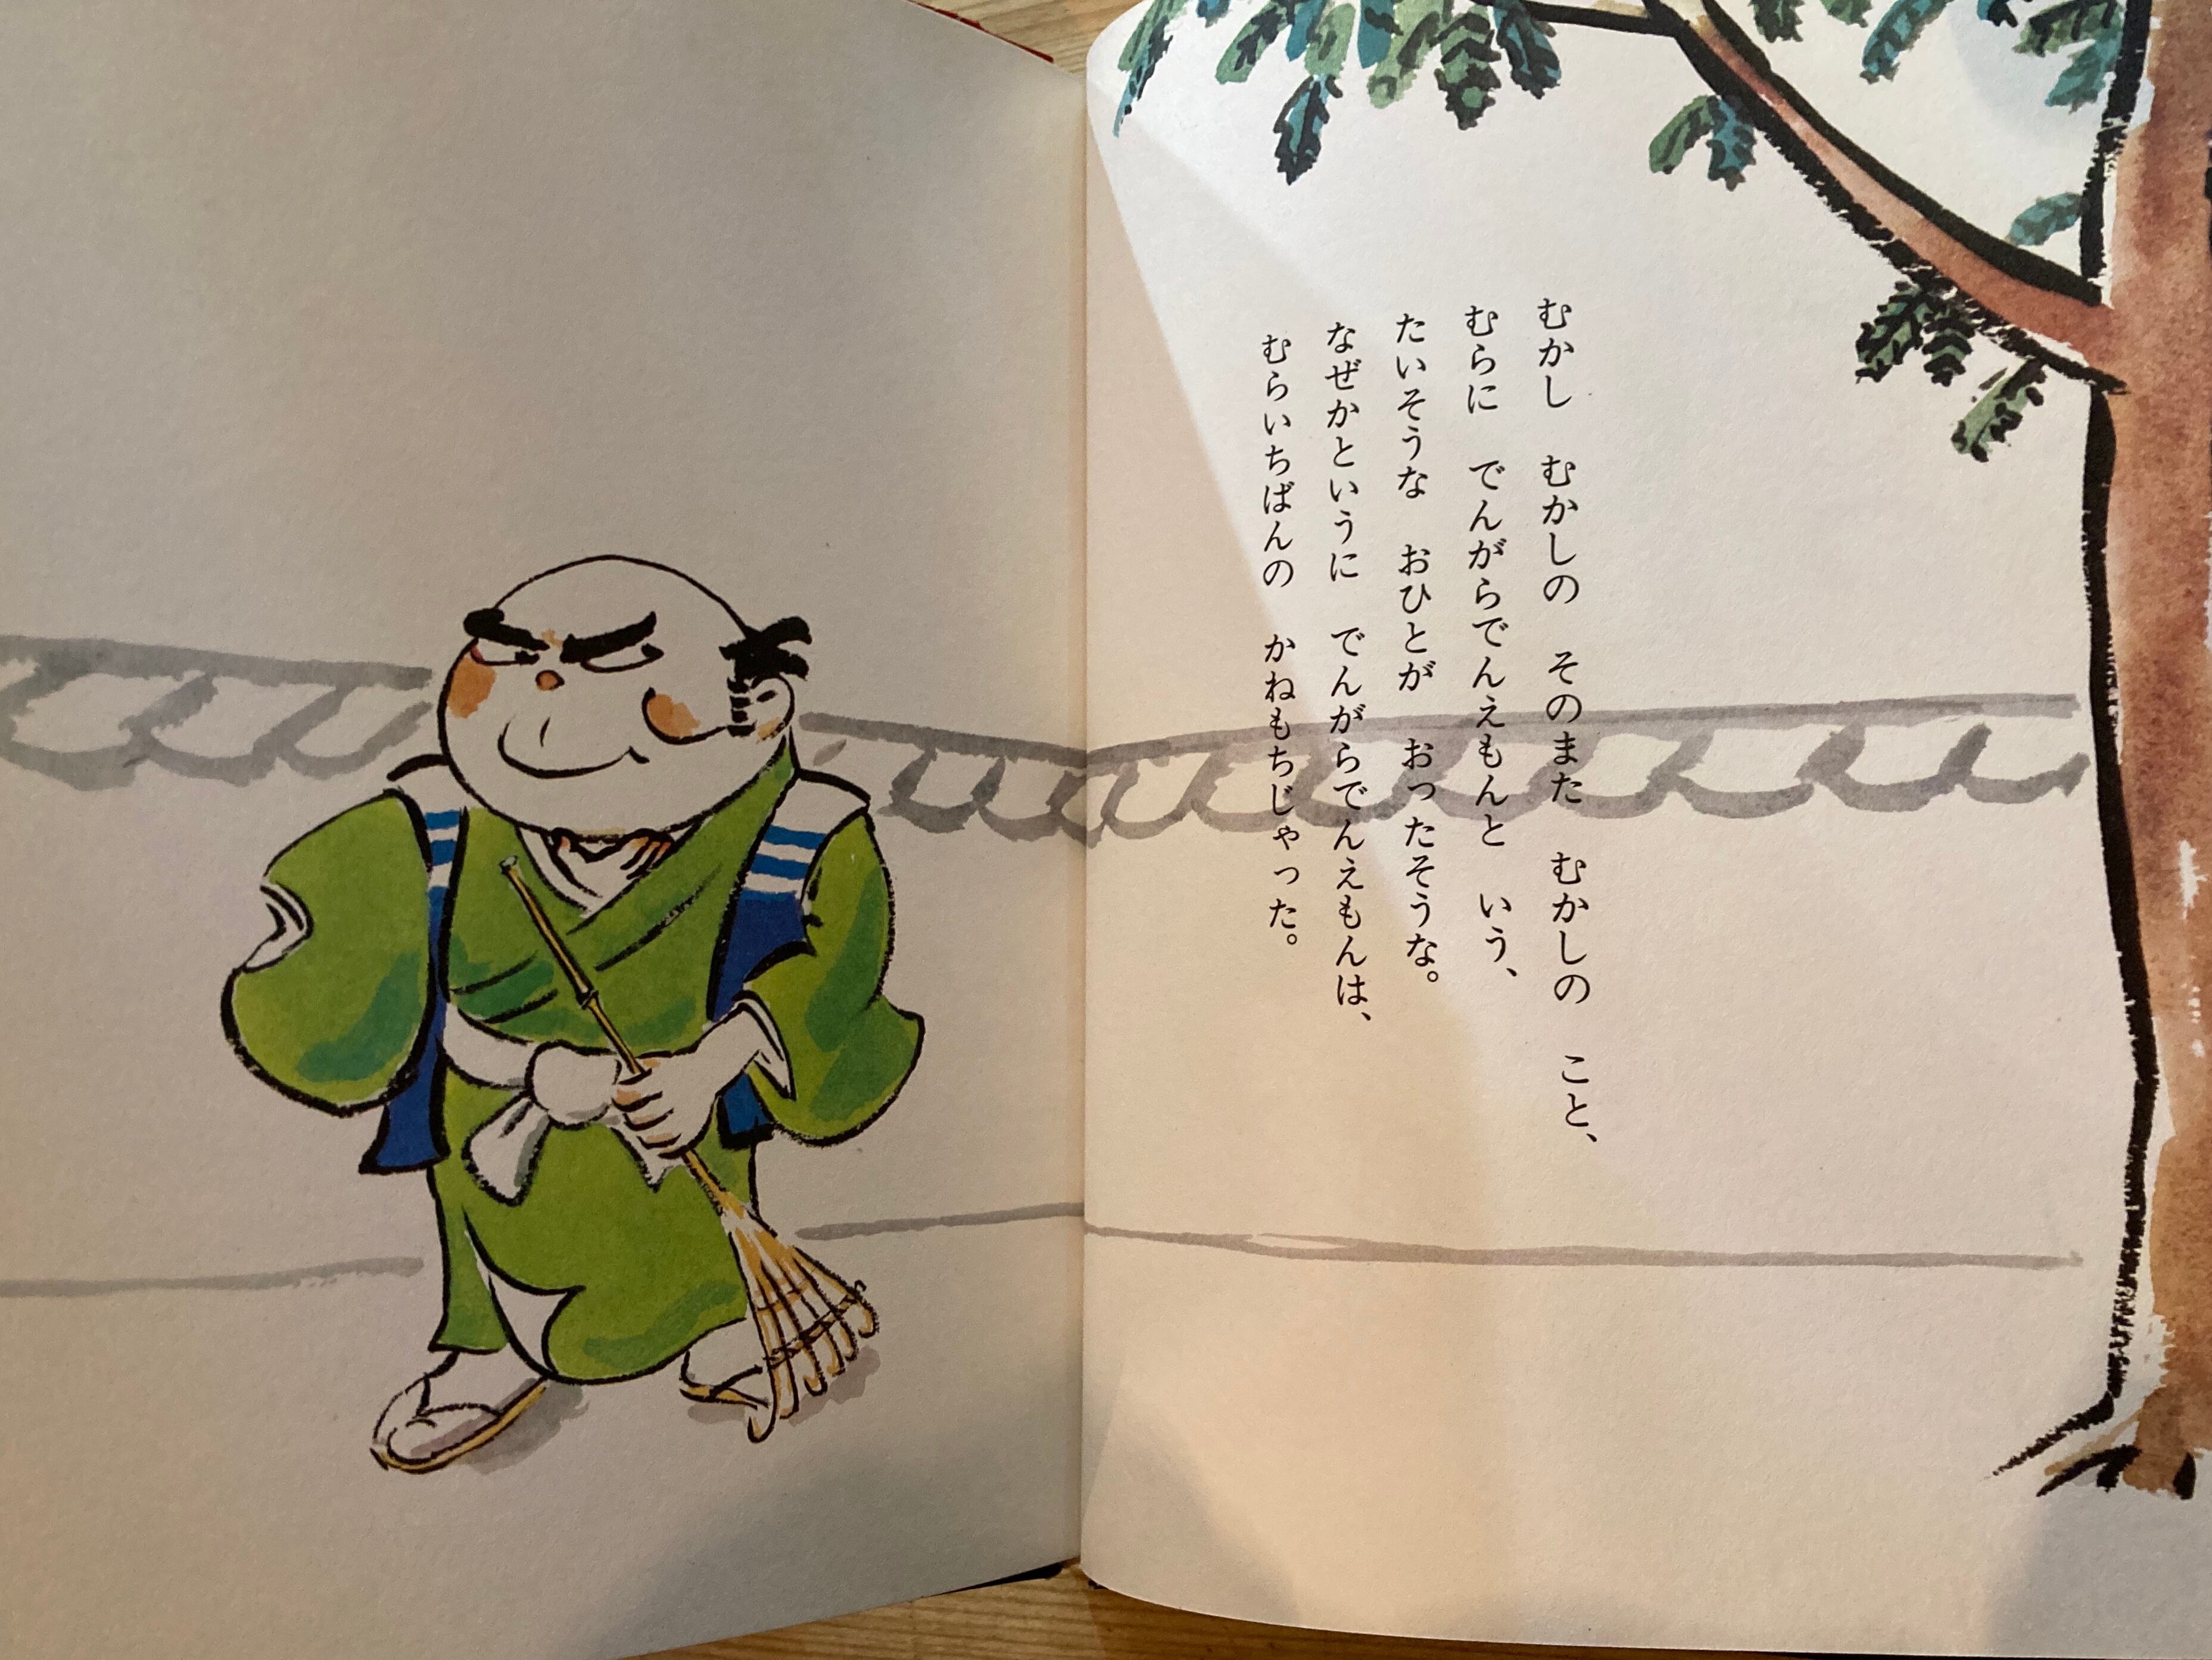 むかし　むかしの　そのまた　むかしの　こと、
むらに　でんがらでんえもんと　いう、
たいそうな　おひとが　おったそうな。
なぜかというに　でんがらでんえもんは、
むらいちばんの　かねもちじゃった。